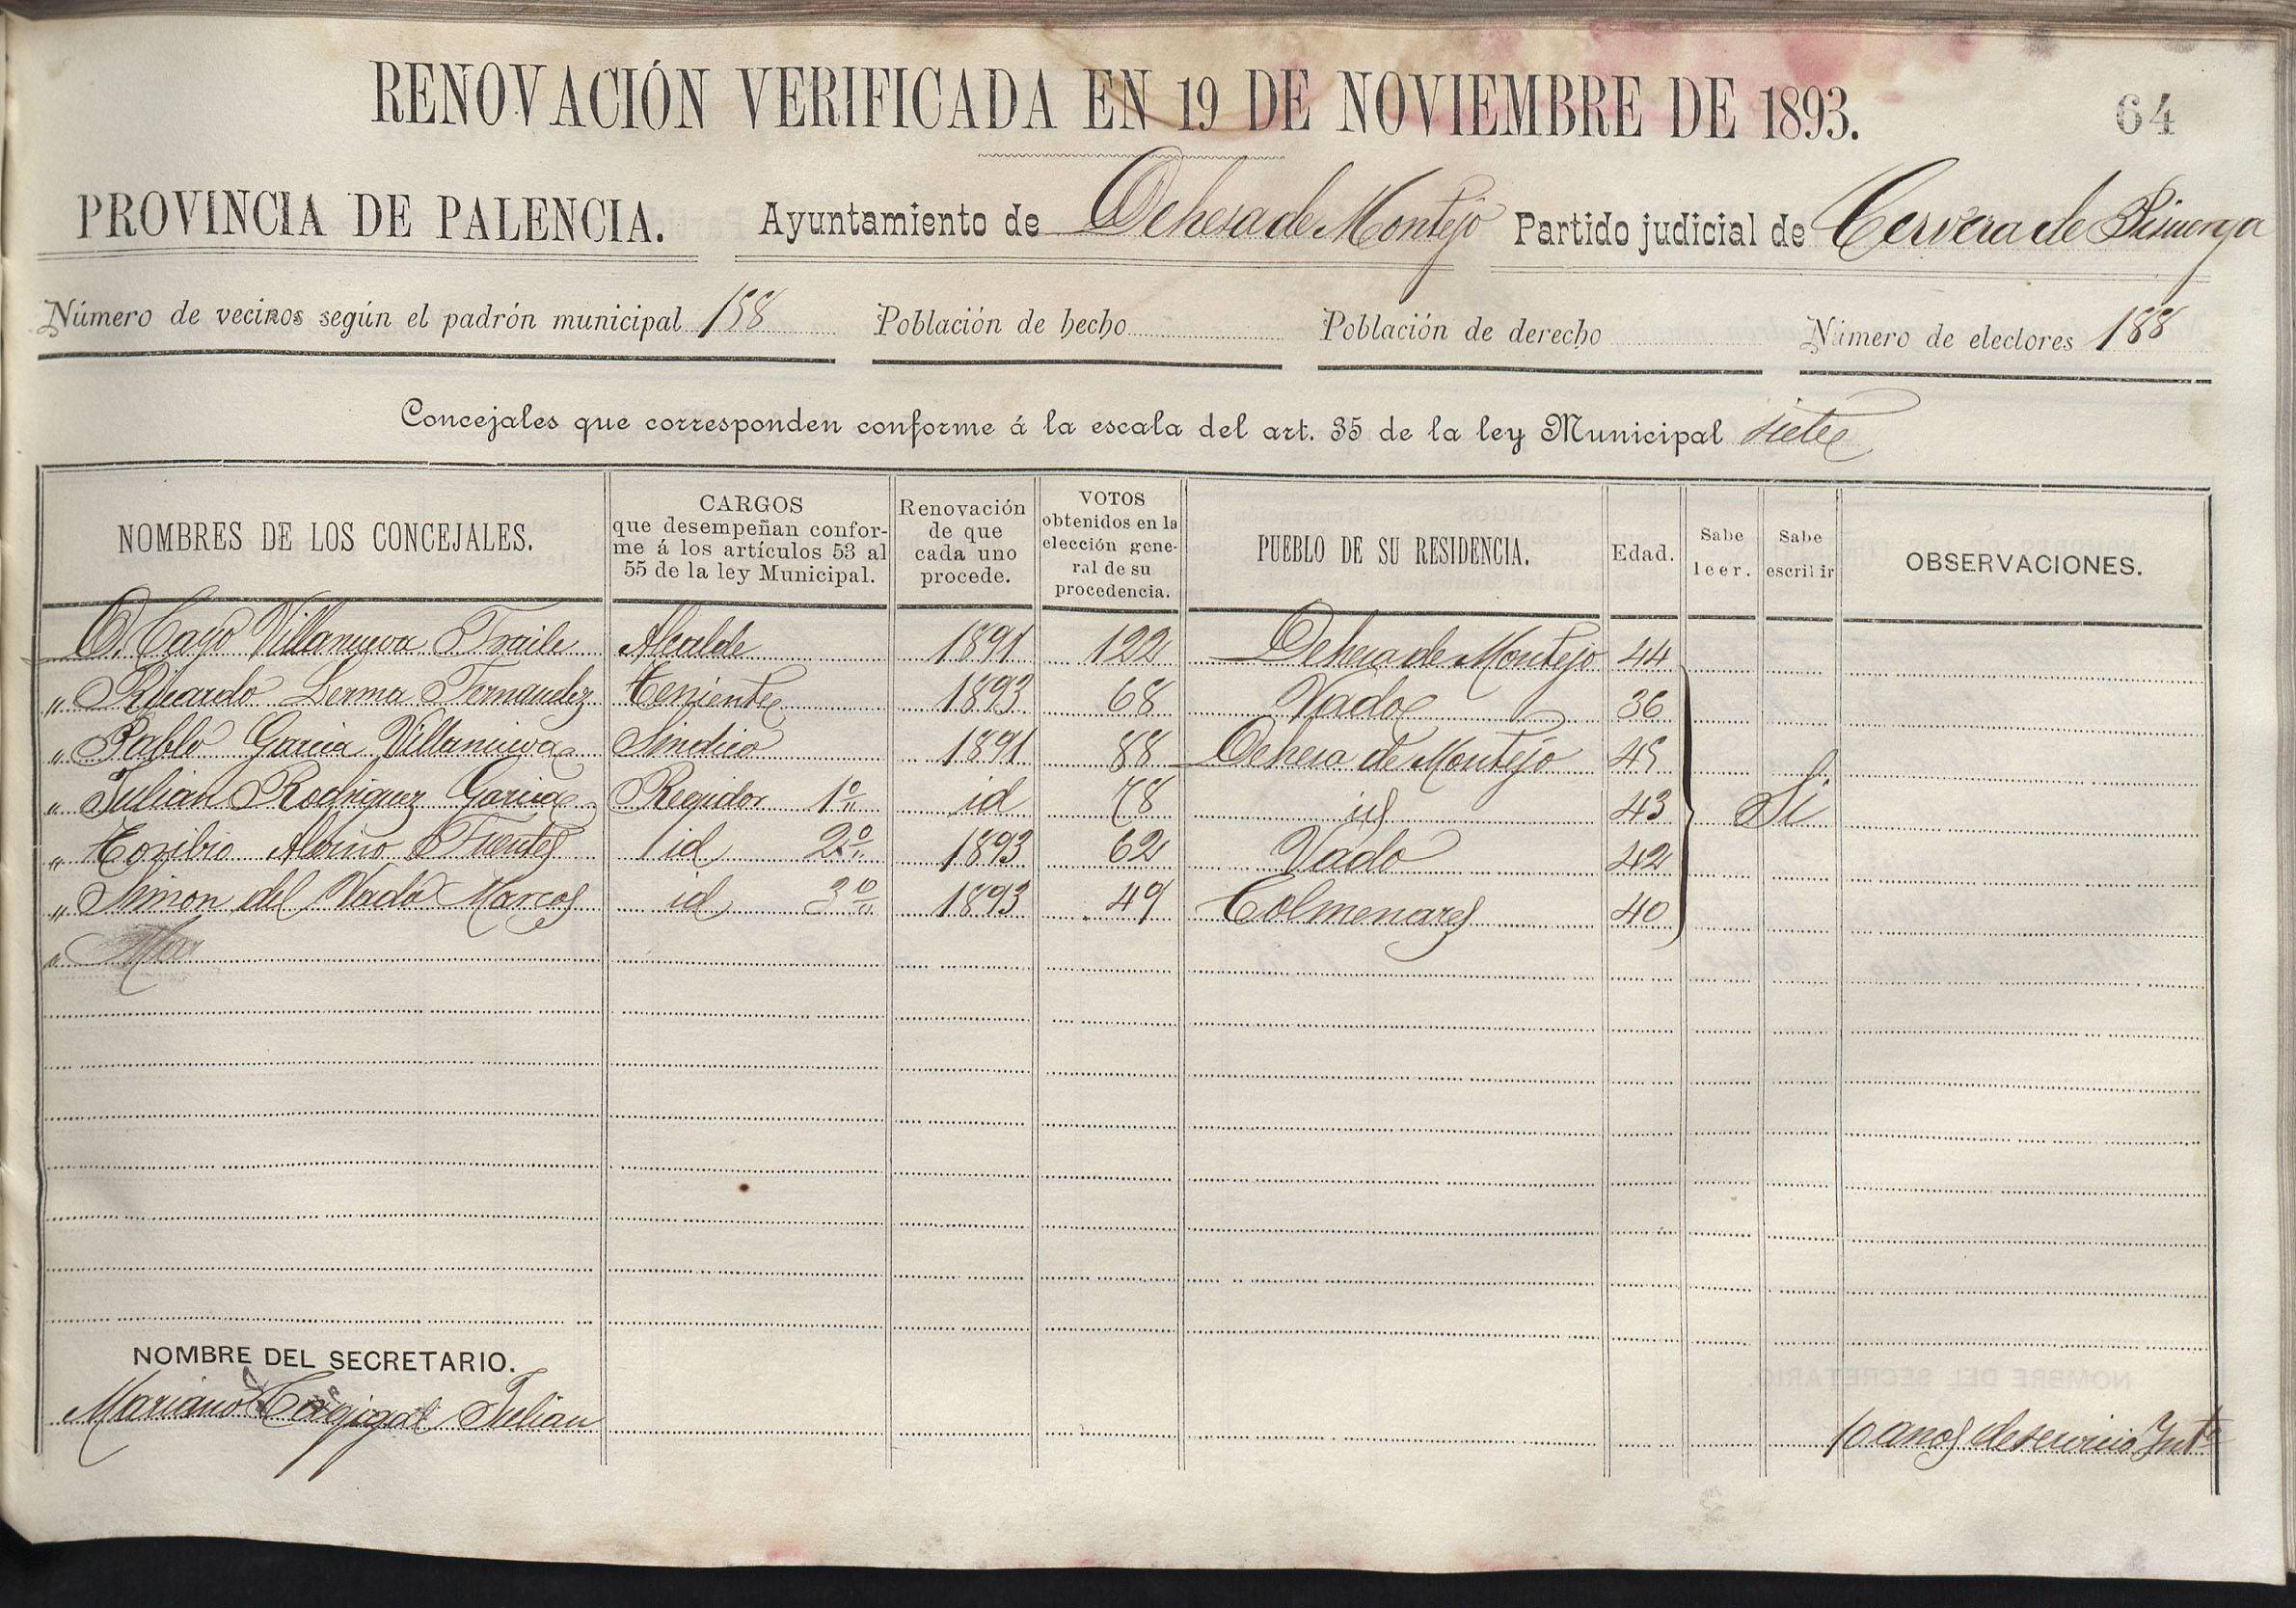 RENOVACIÓN VERIFICADA EN 19 DE NOVIEMBRE DE 1893. 64
PROVINCIA DE PALENCIA. Ayuntamiento de Dehesa de Montejo Partido judicial de Cervera de Pisuerga
Número de vecinos según el padrón municipal 158 Población de hecho Población de derecho Número de electores 188
Concejales que corresponden conforme á la escala del art. 35 de la ley Municipal siete
NOMBRES DE LOS CONCEJALES.
CARGOS
que desempeñan confor-
me á los artículos 53 al
55 de la ley Municipal.
Renovación
de que
cada uno
procede.
VOTOS
obtenidos en la
elección gene-
ral de su
procedencia.
PUEBLO DE SU RESIDENCIA.
Edad.
Sabe
leer.
Sabe
escribir
OBSERVACIONES.
D. Cayo Villanueva Fraile Alcalde 1891 122 Dehesa de Montejo 44
" Ricardo Lerma Fernandez Teniente 1893 68 Vado 36
" Pablo Garcia Villanueva Sindico 1891 88 Dehesa de Montejo 45
" Julian Rodriguez Garcia Regidor 1º id 78 id 43 Si
" Toribio Albino Fuentes id 2º 1893 62 Vado 42
" Simon del Vado Marcos id 3º 1893 49 Colmenares 40
"
NOMBRE DEL SECRETARIO.
Mariano Julian 10 anos de servicio Intº